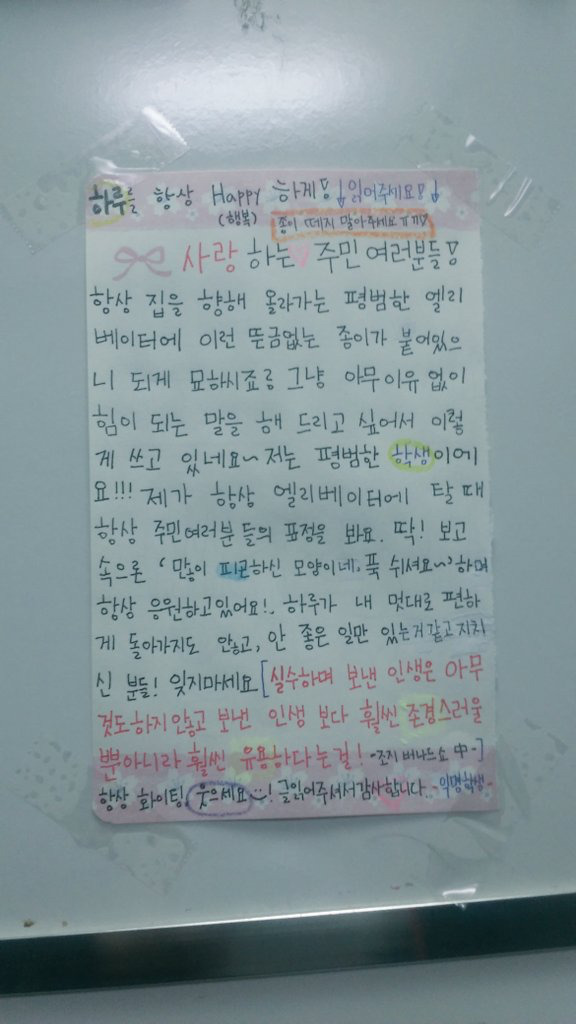 하루를 항상 Happy 하게! 읽어주세요!
(행복) 종이 떼지 말아주세요ㅠㅠ!
사랑하는 주민여러분들!
항상 집을 향해 올라가는 평범한 엘리
베이터에 이런 뜬금없는 종이가 붙어있으
니 되게 묘하시죠? 그냥 아무이유 없이
힘이 되는 말을 해 드리고 싶어서 이렇
게 쓰고 있네요~ 저는 평범한 학생이에
요!!! 제가 항상 엘리베이터에 탈 때
항상 주민여러분들의 표정을 봐요. 딱! 보고
속으론 '많이 피곤하신 모양이네. 푹 쉬셔요~' 하며
항상 응원하고있어요!. 하루가 내 멋대로 편하
게 돌아가지도 않고, 안 좋은 일만 있는거같고 지치
신 분들! 잊지마세요 [실수하며 보낸 인생은 아무
것도하지않고 보낸 인생 보다 훨씬 존경스러울
뿐아니라 훨씬 유용하다는걸! -조지 버나드쇼 中-]
항상 화이팅, 웃으세요! 글읽어주셔서감사합니다. -익명학생-